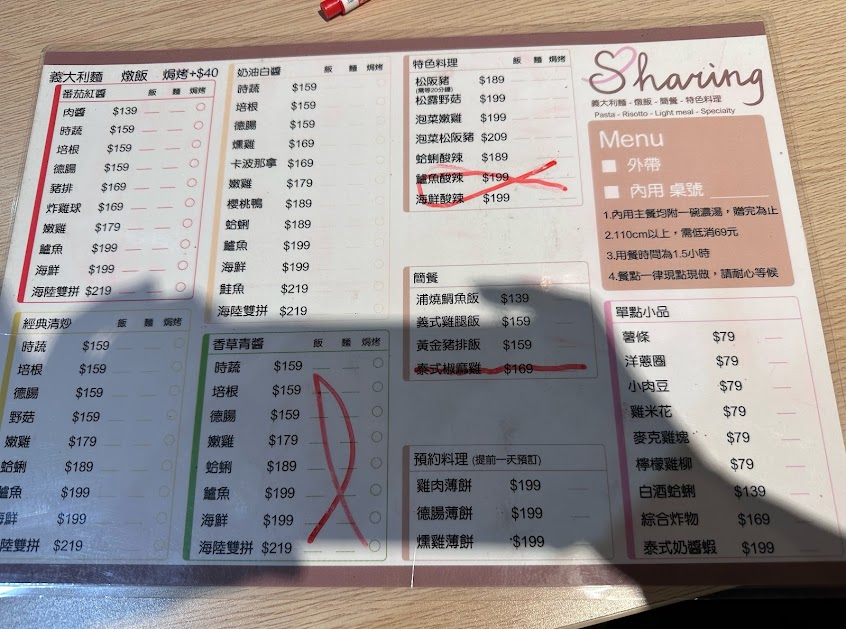 義大利麵 燉飯 焗烤+$40
番茄紅醬 飯 麵 焗烤
肉醬 $139
時蔬 $159
培根 $159
德腸 $159
豬排 $169
炸雞球 $169
嫩雞 $179
鱸魚 $199
海鮮 $199
海陸雙拼 $219
經典清炒 飯 麵 焗烤
時蔬 $159
培根 $159
德腸 $159
野菇 $159
嫩雞 $179
蛤蜊 $189
鱸魚 $199
海鮮 $199
陸雙拼 $219
奶油白醬 飯 麵 焗烤
時蔬 $159
培根 $159
德腸 $159
燻雞 $169
卡波那拿 $169
嫩雞 $179
櫻桃鴨 $189
蛤蜊 $189
鱸魚 $199
海鮮 $199
鮭魚 $219
海陸雙拼 $219
香草青醬 飯 麵 焗烤
時蔬 $159
培根 $159
德腸 $159
嫩雞 $179
蛤蜊 $189
鱸魚 $199
海鮮 $199
海陸雙拼 $219
特色料理 飯 麵 焗烤
松阪豬 $189
(需等20分鐘)
松露野菇 $199
泡菜嫩雞 $199
泡菜松阪豬 $209
蛤蜊酸辣 $189
鱸魚酸辣 $199
海鮮酸辣 $199
簡餐
浦燒鯛魚飯 $139
義式雞腿飯 $159
黃金豬排飯 $159
泰式椒麻雞 $169
預約料理 (提前一天預訂)
雞肉薄餅 $199
德腸薄餅 $199
燻雞薄餅 $199
Sharing
義大利麵-燉飯-簡餐-特色料理
Pasta - Risotto - Light meal - Specialty
Menu
外帶
內用 桌號
1.內用主餐均附一碗濃湯，贈完為止
2.110cm以上，需低消69元
3.用餐時間為1.5小時
4.餐點一律現點現做，請耐心等候
單點小品
薯條 $79
洋蔥圈 $79
小肉豆 $79
雞米花 $79
麥克雞塊 $79
檸檬雞柳 $79
白酒蛤蜊 $139
綜合炸物 $169
泰式奶醬蝦 $199